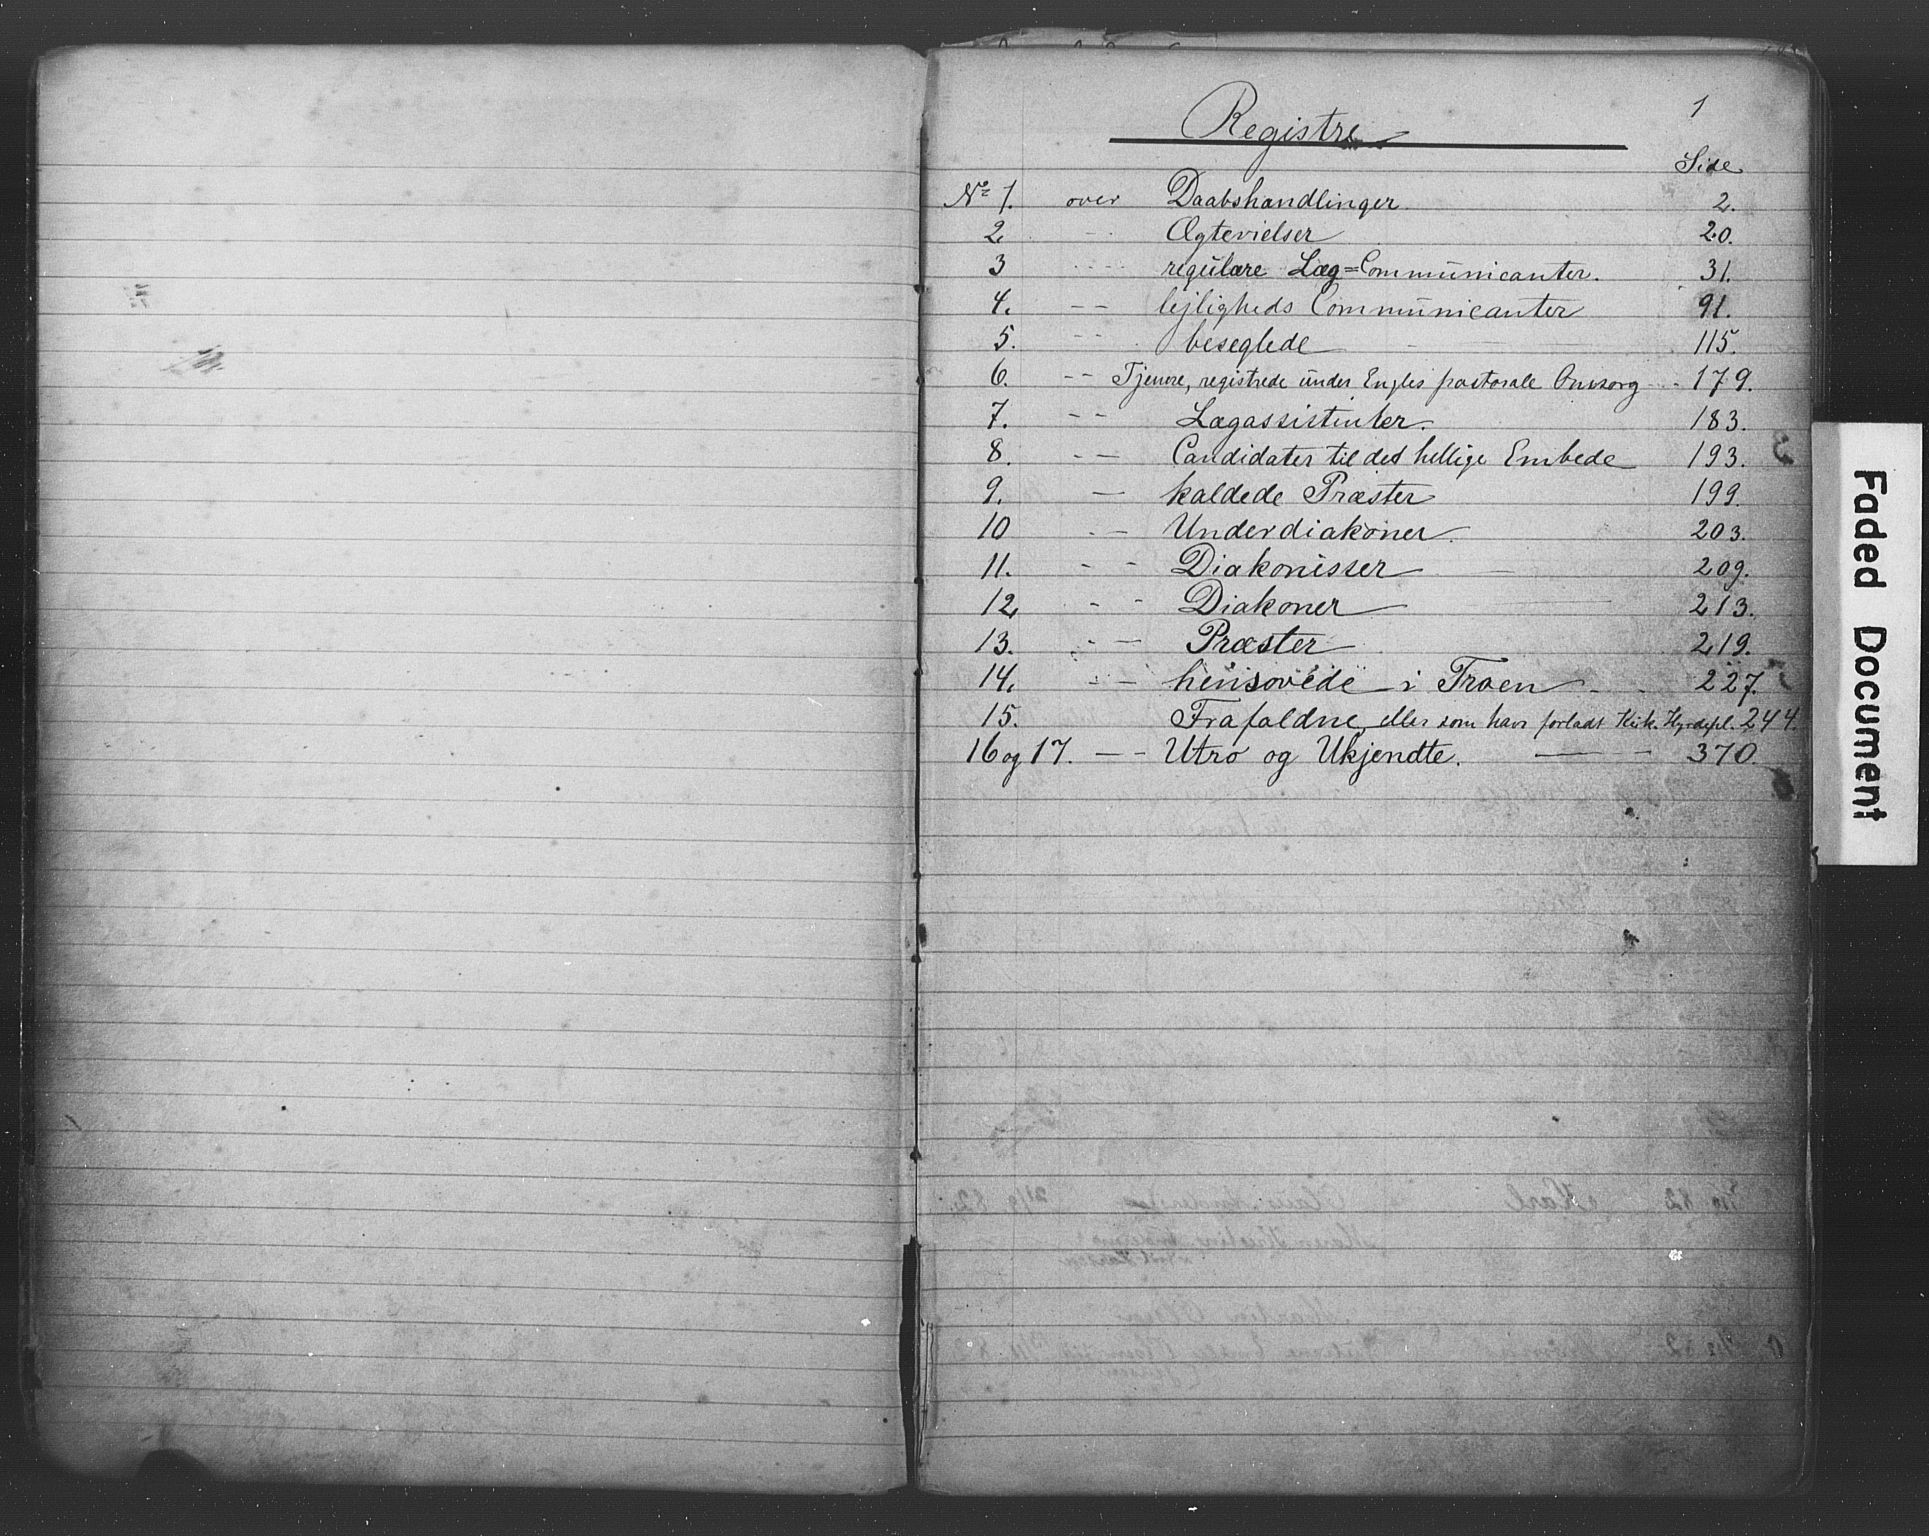 1
Registre
Side
No 1. over Daabshandlinger 2.
2 - - Ægtevielser 20.
3 - - - - regulære Læg=Communicanter. 31.
4. - - lejligheds Communicanter 91.
5. - - beseglede 115.
6. - - Tjenere, registrede under Engles pastorale Omsorg - - 179.
7. - - Lægassistenter. 183.
8. - - Candidater til det hellige Embede 193.
9. - kaldede Præster 199.
10 - - Underdiakoner. 203.
11. - - Diakonisser 209.
12 - - Diakoner 213.
13. - - Præster 219.
14. - - hensovede i Troen - - 227.
15. Frafaldne, eller som have forladt Kirk. Hyrdepl. 244.
16 og 17. - - Utro og Ukjendte. - - 370.
Faded Document